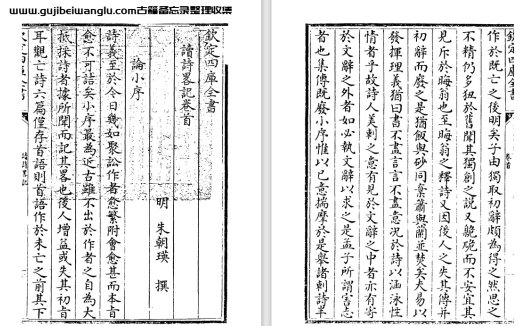 www.gujibeiwanglu.com古籍备忘录整理收集
欽定四庫全書
讀詩畧記卷首
明 朱朝瑛 撰
論小序
詩義至於今日幾如聚訟作者愈繁附會愈甚而本旨
愈不可詰矣小序最為近古雖不出於作者之自為大
抵採詩者據所聞而記其畧也後人增益或失其初旨
耳觀亡詩六篇僅存首語則首語作於未亡之前其下
作於既亡之後明矣子由獨取初辭頗為得之然思之
不精仍多狃於舊聞其獨創之說又而不安宜其
見斥於晦翁也至晦翁之釋詩又因後人之失其傳并
初辭而廢之是猶飯與砂同棄蕭與蘭並焚矣夫易以
發揮理義猶曰書不盡言言不盡意况於詩以涵泳性
情者乎故詩人美刺之意有見於文辭之中者亦有寄
於文辭之外者如必執文辭以求之是孟子所謂害志
者也集傳既廢小序惟以己意揣摩於是舉諸刺詩半